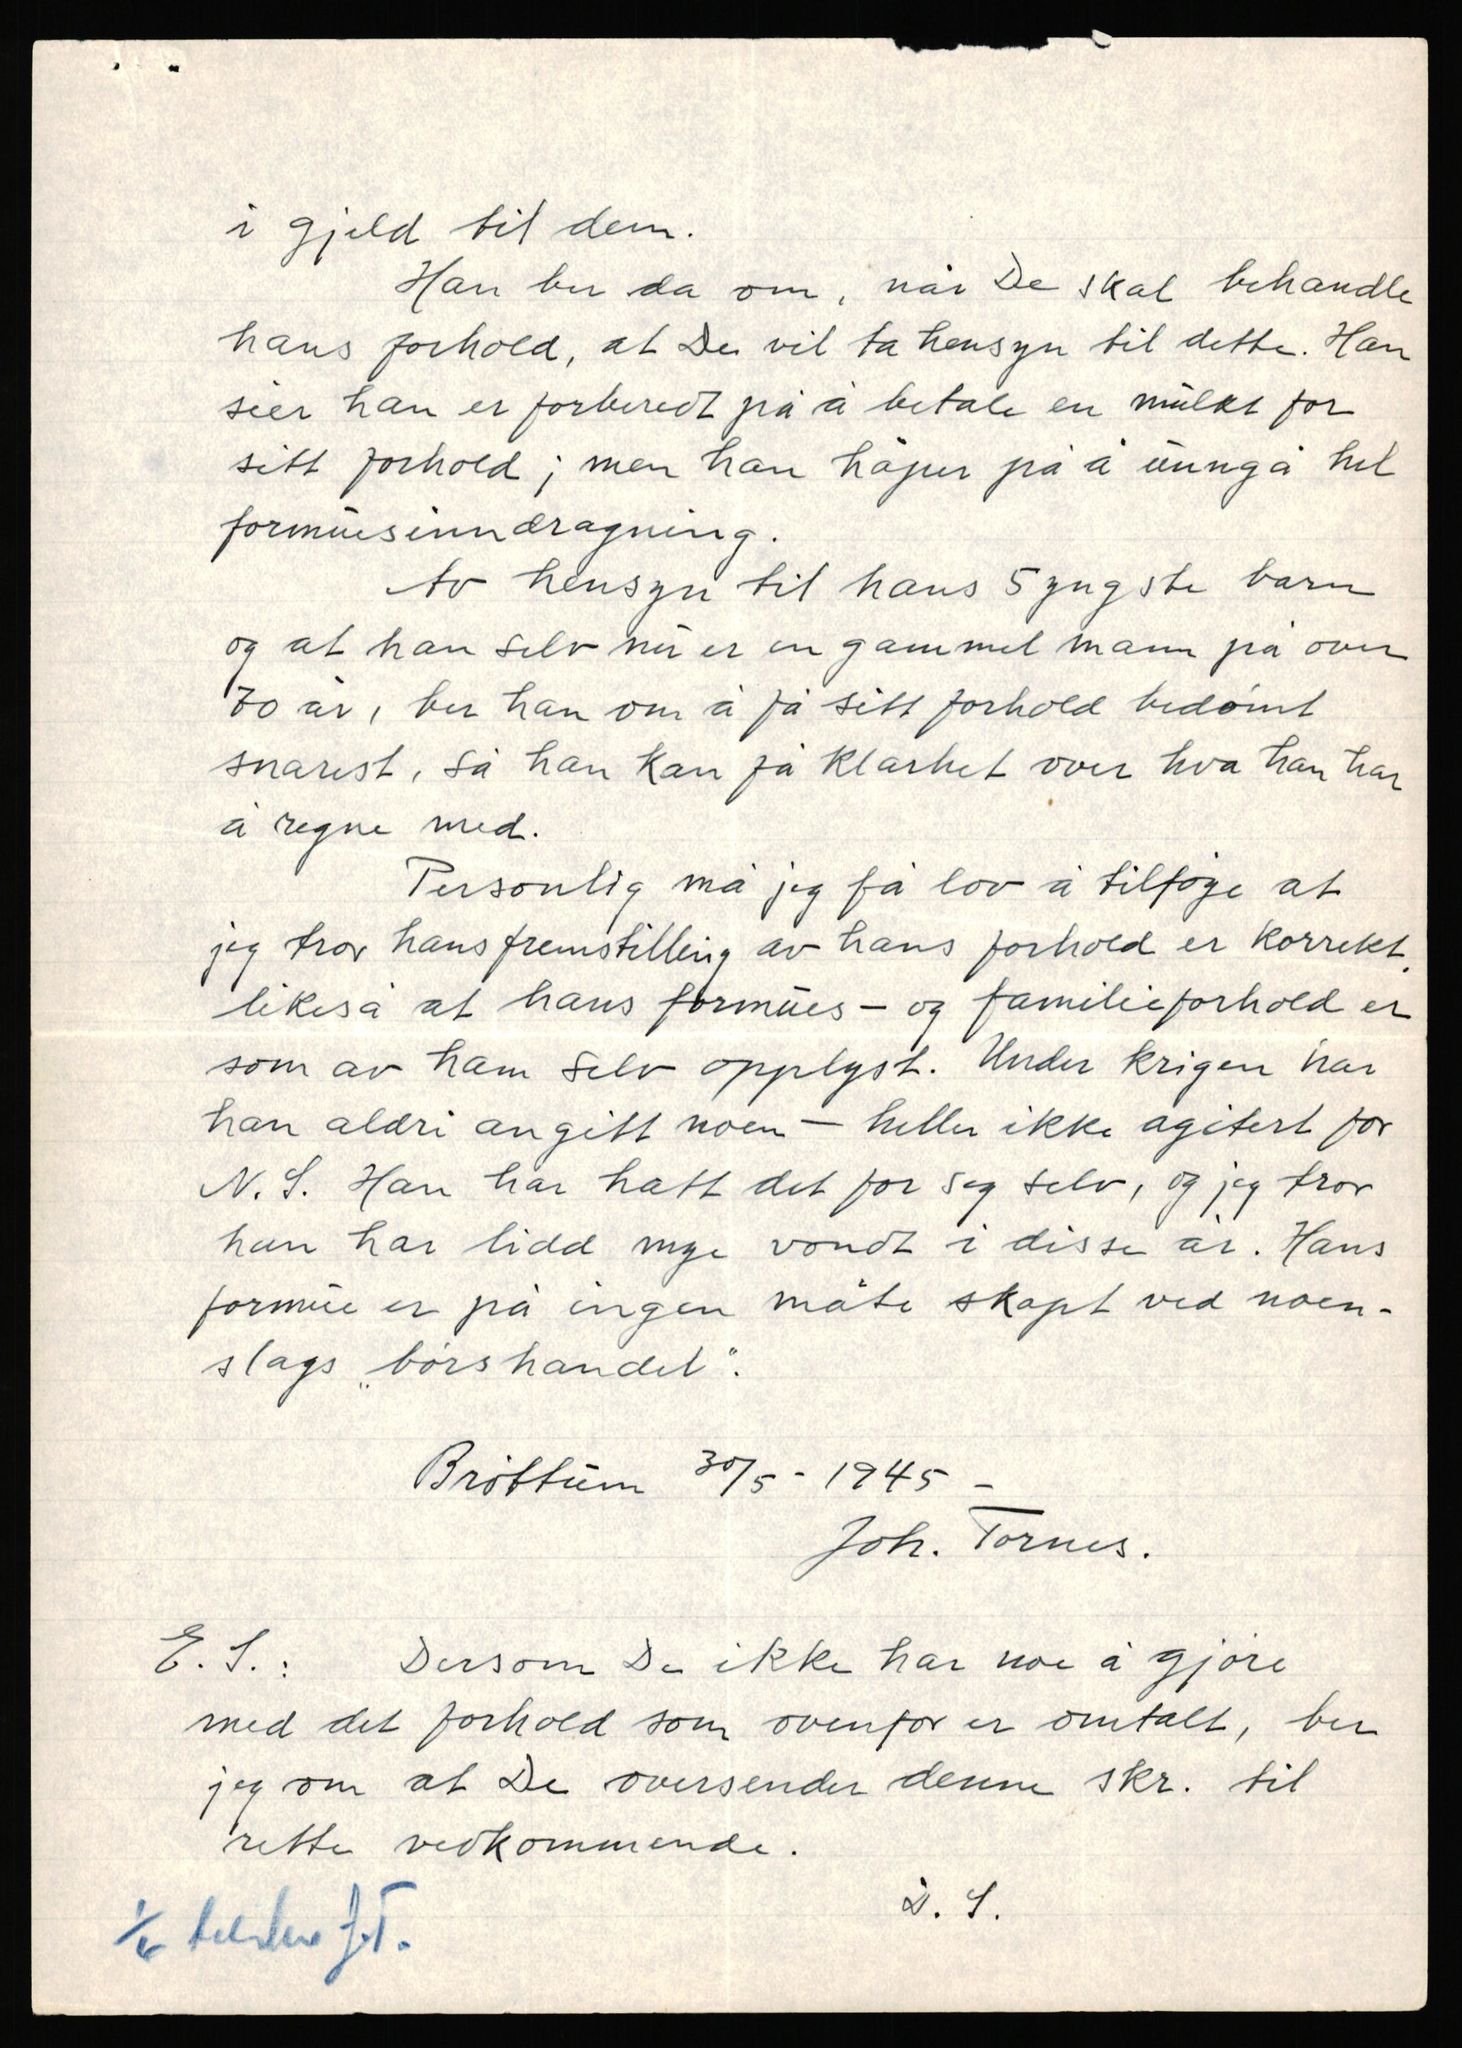 i gjeld til dem.
Han ber da om, når De skal behandle
hans forhold, at De vil ta hensyn til dette. Han
sier han er forberedt på å betale en mulkt for
sitt forhold; men han håper på å unngå hel
formuesinndragning.
Av hensyn til hans 5 yngste barn
og at han selv nu er en gammel mann på over
70 år, ber han om å få sitt forhold bedømt
snarest, så han kan få klarhet over hva han har
å regne med.
Personlig må jeg få lov å tilføye at
jeg tror hans fremstilling av hans forhold er korrekt,
likeså at hans formues- og familieforhold er
som av ham selv opplyst. Under krigen har
han aldri angitt noen - heller ikke agitert for
N. S. Han har hatt det for seg selv, og jeg tror
han har lidd mye vondt i disse år. Hans
formue er på ingen måte skapt ved noen-
slags „børshandel".
Brøttum 30/5 - 1945 -
Joh. Tornes.
E. S.: Dersom De ikke har noe å gjøre
med det forhold som ovenfor er omtalt, ber
jeg om at De oversender denne skr. til
rette vedkommende.
D. S.
1/6 J.T.